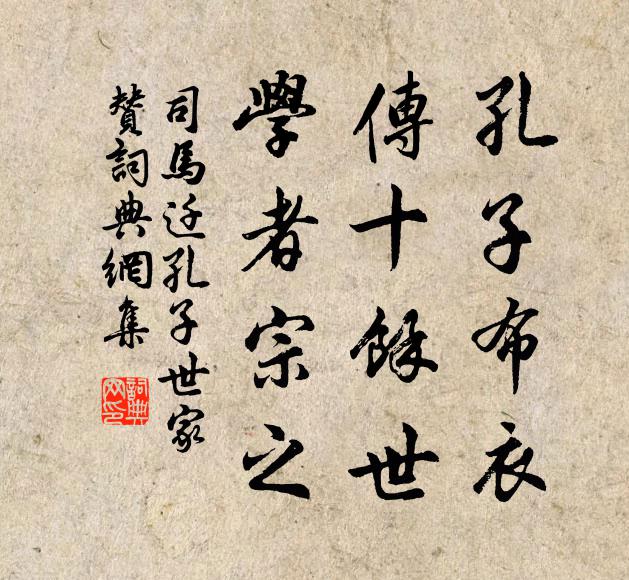 孔子布衣
傳十餘世
學者宗之
司馬迁孔子世家
贊詞典網集
詞典
网印